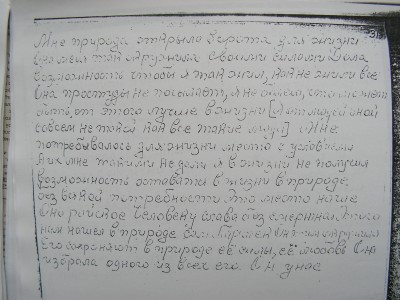 31
Мне природа открыла ворота для жизни
Она меня так окружила своими силами Дала
возможность чтобы я так жил, как не жили все
Она простуды не посылает, я не болею, что может
быть от этого лучше в жизни Я от людей иной
совсем не такой как все такие люди Мне
потребовалось для жизни место с условиями
Их мне такими не дали я в жизни не получил
возможность остаться в жизни в природе,
без всякой потребности Это место наше
Оно райское Человеку слава бессмертная Его
нам нашел в природе сам Паршек Он им окружил
Его сохраняют в природе её силы, её любовь Она
избрала одного из всех его. Он у нас